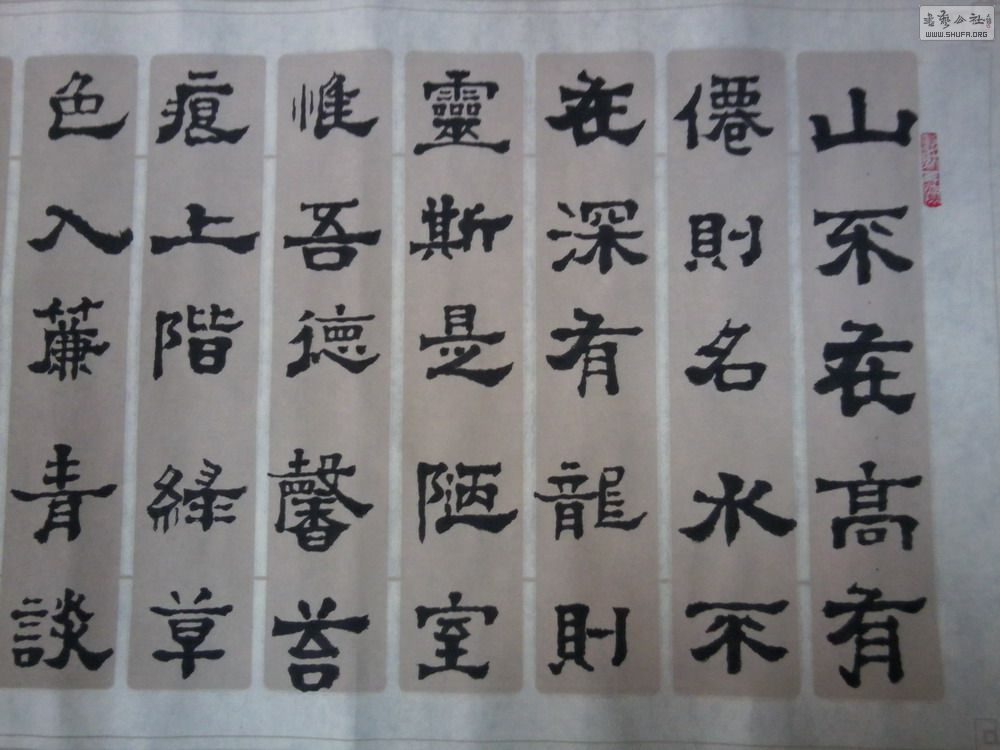 山不在高有
僊則名水不
在深有龍則
靈斯是陋室
惟吾德馨苔
痕上階緑草
色入簾青談
書藝公社
WWW.SHUFA.ORG